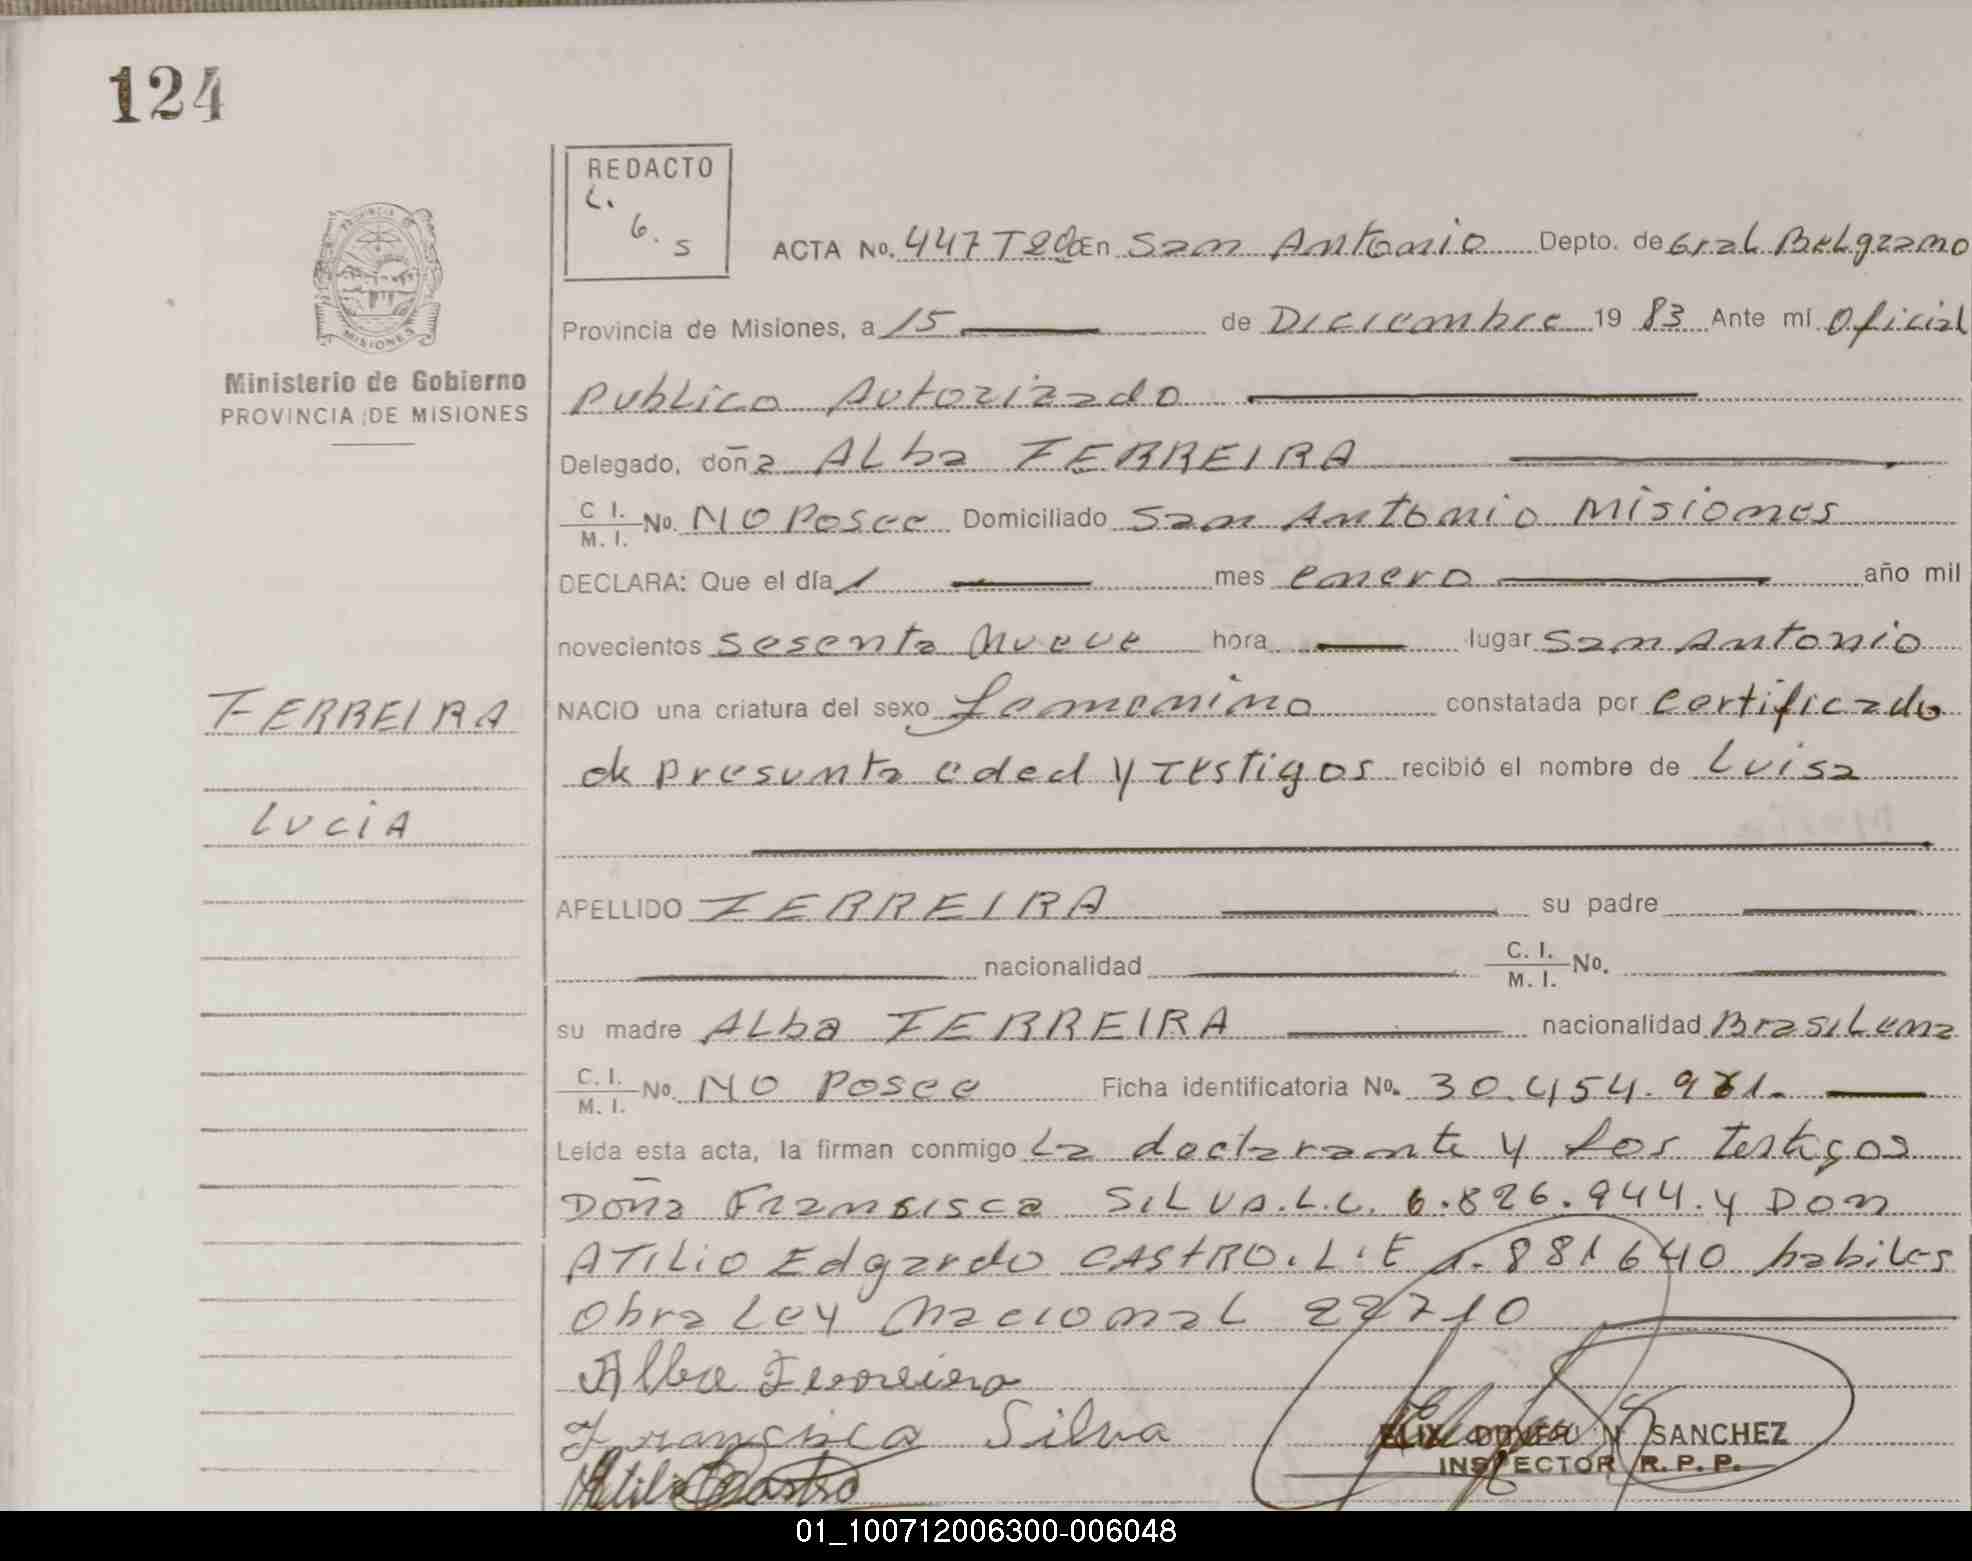 124
REDACTO
L.
6.
S
ACTA No. 447 T2do En San Antonio Depto. de Gral Belgrano
PROVINCIA DE
MISIONES
Provincia de Misiones, a 15 de Diciembre 19 83 Ante mí Oficial
Ministerio de Gobierno
PROVINCIA DE MISIONES
Publico Autorizado
Delegado, doña Alba FERREIRA
C I. / M. I. No. NO Posee Domiciliado San Antonio Misiones
DECLARA: Que el día 1 mes enero año mil
novecientos sesenta Nueve hora lugar San Antonio
FERREIRA
NACIO una criatura del sexo femenino constatada por certificado
de presunta eded y Testigos recibió el nombre de Luisa
LUCIA
APELLIDO FERREIRA su padre
nacionalidad C. I. / M. I. No.
su madre Alba FERREIRA nacionalidad Brasilena
C. I. / M. I. No. NO Posee Ficha identificatoria No. 30.454.9 1.
Leída esta acta, la firman conmigo La declarante y los Testigos
Doña Fransisca SILVA. L.C. 6.826.944. y Don
ATILIO Edgardo CASTRO. L.E 1.881640 habiles
Obra Ley Nacional 22710
Alba Ferreira
Francisca Silva
Atilio Castro
SANCHEZ
INSPECTOR R. P. P.
01_100712006300-006048